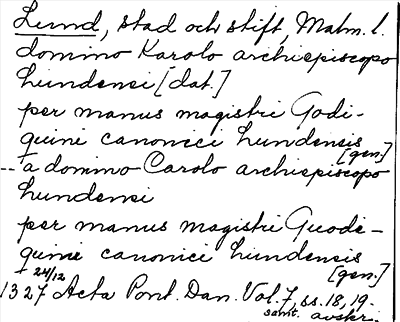 Lund, stad och stift, Malm. l.
domino Karolo archiepiscopo
lundensi [dat.]
per manus magistri Godi-
quini canonici lundensis
[gen.]
-- a domino Carolo archiepiscopo
lundensi
per manus magistri Guodi-
quini canonici lundensis
[gen.]
24/12
1327 Acta Pont. Dan. Vol. 7, ss. 18, 19.
samt. avskr.